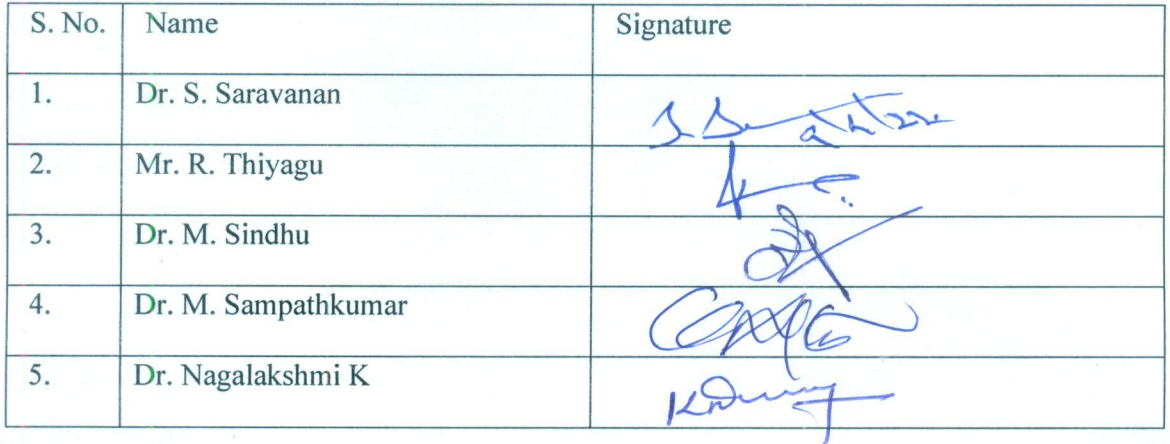 S. No. Name Signature
1. Dr. S. Saravanan
2. Mr. R. Thiyagu
3. Dr. M. Sindhu
4. Dr. M. Sampathkumar
5. Dr. Nagalakshmi K